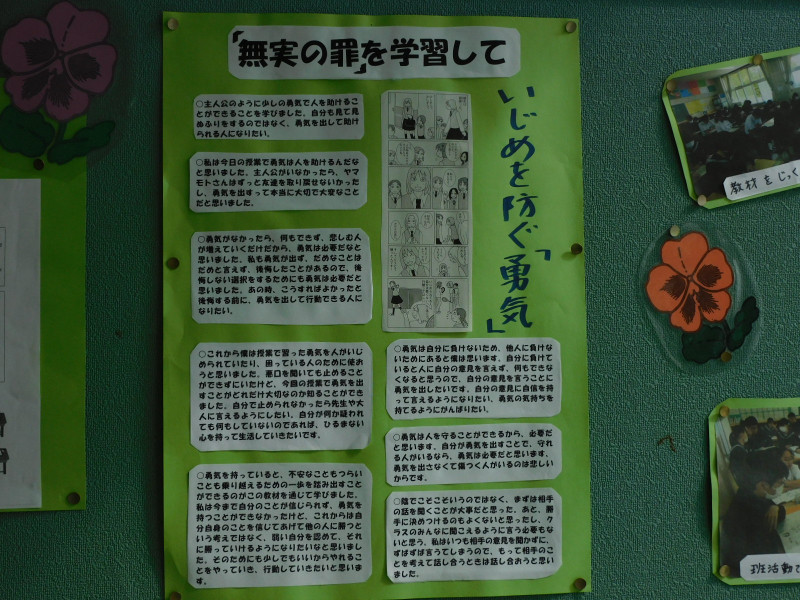 「無実の罪」を学習して
いじめを防ぐ「勇気」
○主人公のように少しの勇気で人を助けるこ
とができることを学びました。自分も見て見
ぬふりをするのではなく、勇気を出して助け
られる人になりたい。
○私は今日の授業で勇気は人を助けるんだな
と思いました。主人公がいなかったら、ヤマ
モトさんはずっと友達を取り戻せないかった
し、勇気を出すって本当に大切で大変なこと
だと思いました。
○勇気がなかったら、何もできず、悲しむ人
が増えていくだけだから、勇気は必要だなと
思いました。私も勇気が出ず、だめなことは
だめと言えず、後悔したことがあるので、後
悔しない選択をするためにも勇気は必要だと
思いました。あの時、こうすればよかったと
後悔する前に、勇気を出して行動できる人に
なりたい。
○これから僕は授業で習った勇気を人がいじ
められていたり、困っている人のために使お
うと思いました。悪口を聞いても止めること
ができずにいたけど、今回の授業で勇気を出
すことがどれだけ大切なのか知ることができ
ました。自分で止められなかったら先生や大
人に言えるようにしたい。自分が何か疑われ
ても何もしていないのであれば、ひるまない
心を持って生活していきたいです。
○勇気を持っていると、不安なこともつらい
ことも乗り越えるための一歩を踏み出すこと
ができるのがこの教材を通じて学びました。
私は今まで自分のことが信じられず、勇気を
持つことができなかったけど、これからは自
分自身のことを信じてあげて他の人に勝つと
いう考えではなく、弱い自分を認めて、それ
に勝っていけるようになりたいなと思いまし
た。そのためにも少しでもいいからやれるこ
とをやっていき、行動していきたいと思いま
す。
○勇気は自分に負けないため、他人に負けな
いためにあると僕は思います。自分に負けて
いると人に自分の意見を言えず、何もできな
くなると思うので、自分の意見を言うことに
勇気を出したいです。自分の意見に自信を持
って言えるようになりたい。勇気の気持ちを
持てるようにがんばりたい。
○勇気は人を守ることができるから、必要だ
と思います。自分が勇気を出すことで、守れ
る人がいるなら、勇気は必要だと思います。
勇気を出さなくて傷つく人がいるのは悲しい
からです。
○陰でこそこそいうのではなく、まずは相手
の話を聞くことが大事だと思った。あと、勝
手に決めつけるのもよくないと思ったし、ク
ラスのみんなに聞こえるように言う必要もな
いと思う。私はいつも相手の意見を聞かずに、
ずばずば言うてしまうので、もって相手のこ
とを考えて話し合うときは話し合おうと思い
ました。
教材をじっく
班活動で